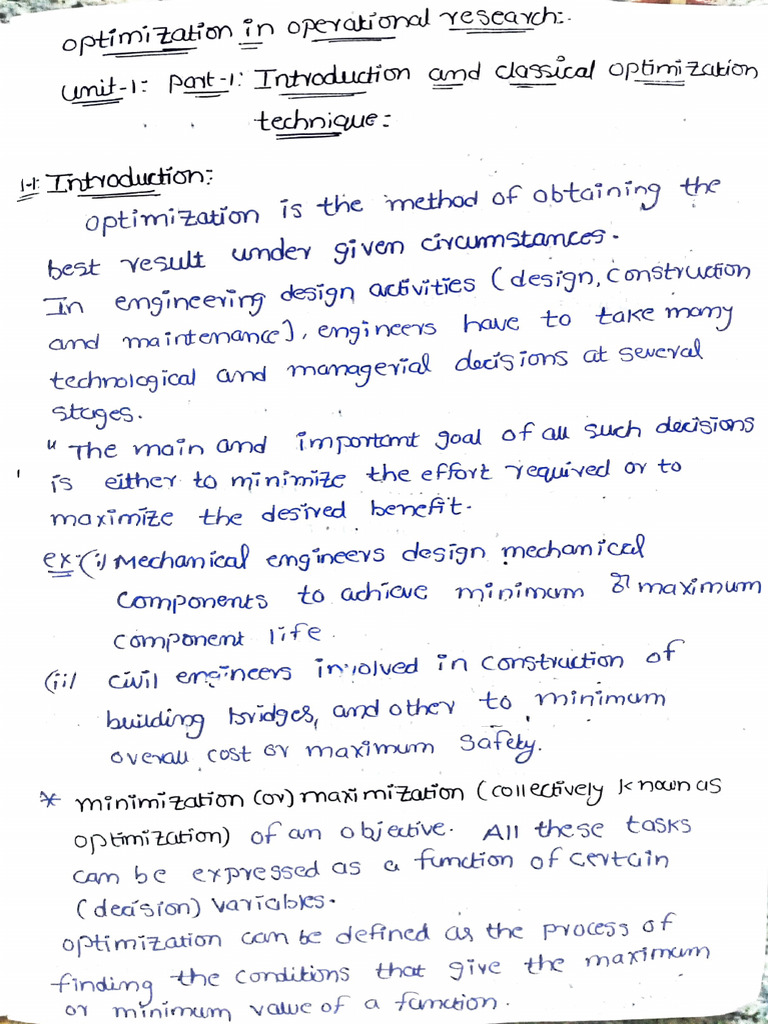 optimization in operational research:-
unit-1: Part-1: Introduction and classical optimization
technique:-
1-1: Introduction:
optimization is the method of obtaining the
best result under given circumstances.
In engineering design activities (design, construction
and maintenance), engineers have to take many
technological and managerial decisions at several
stages.
" The main and important goal of all such decisions
is either to minimize the effort required or to
maximize the desired benefit.
ex:-(i) Mechanical engineers design mechanical
components to achieve minimum or maximum
component life.
(ii) civil engineers involved in construction of
building bridges, and other to minimum
overall cost or maximum safety.
* minimization (or) maximization (collectively known as
optimization) of an objective. All these tasks
can be expressed as a function of certain
(decision) variables.
optimization can be defined as the process of
finding the conditions that give the maximum
or minimum value of a function.